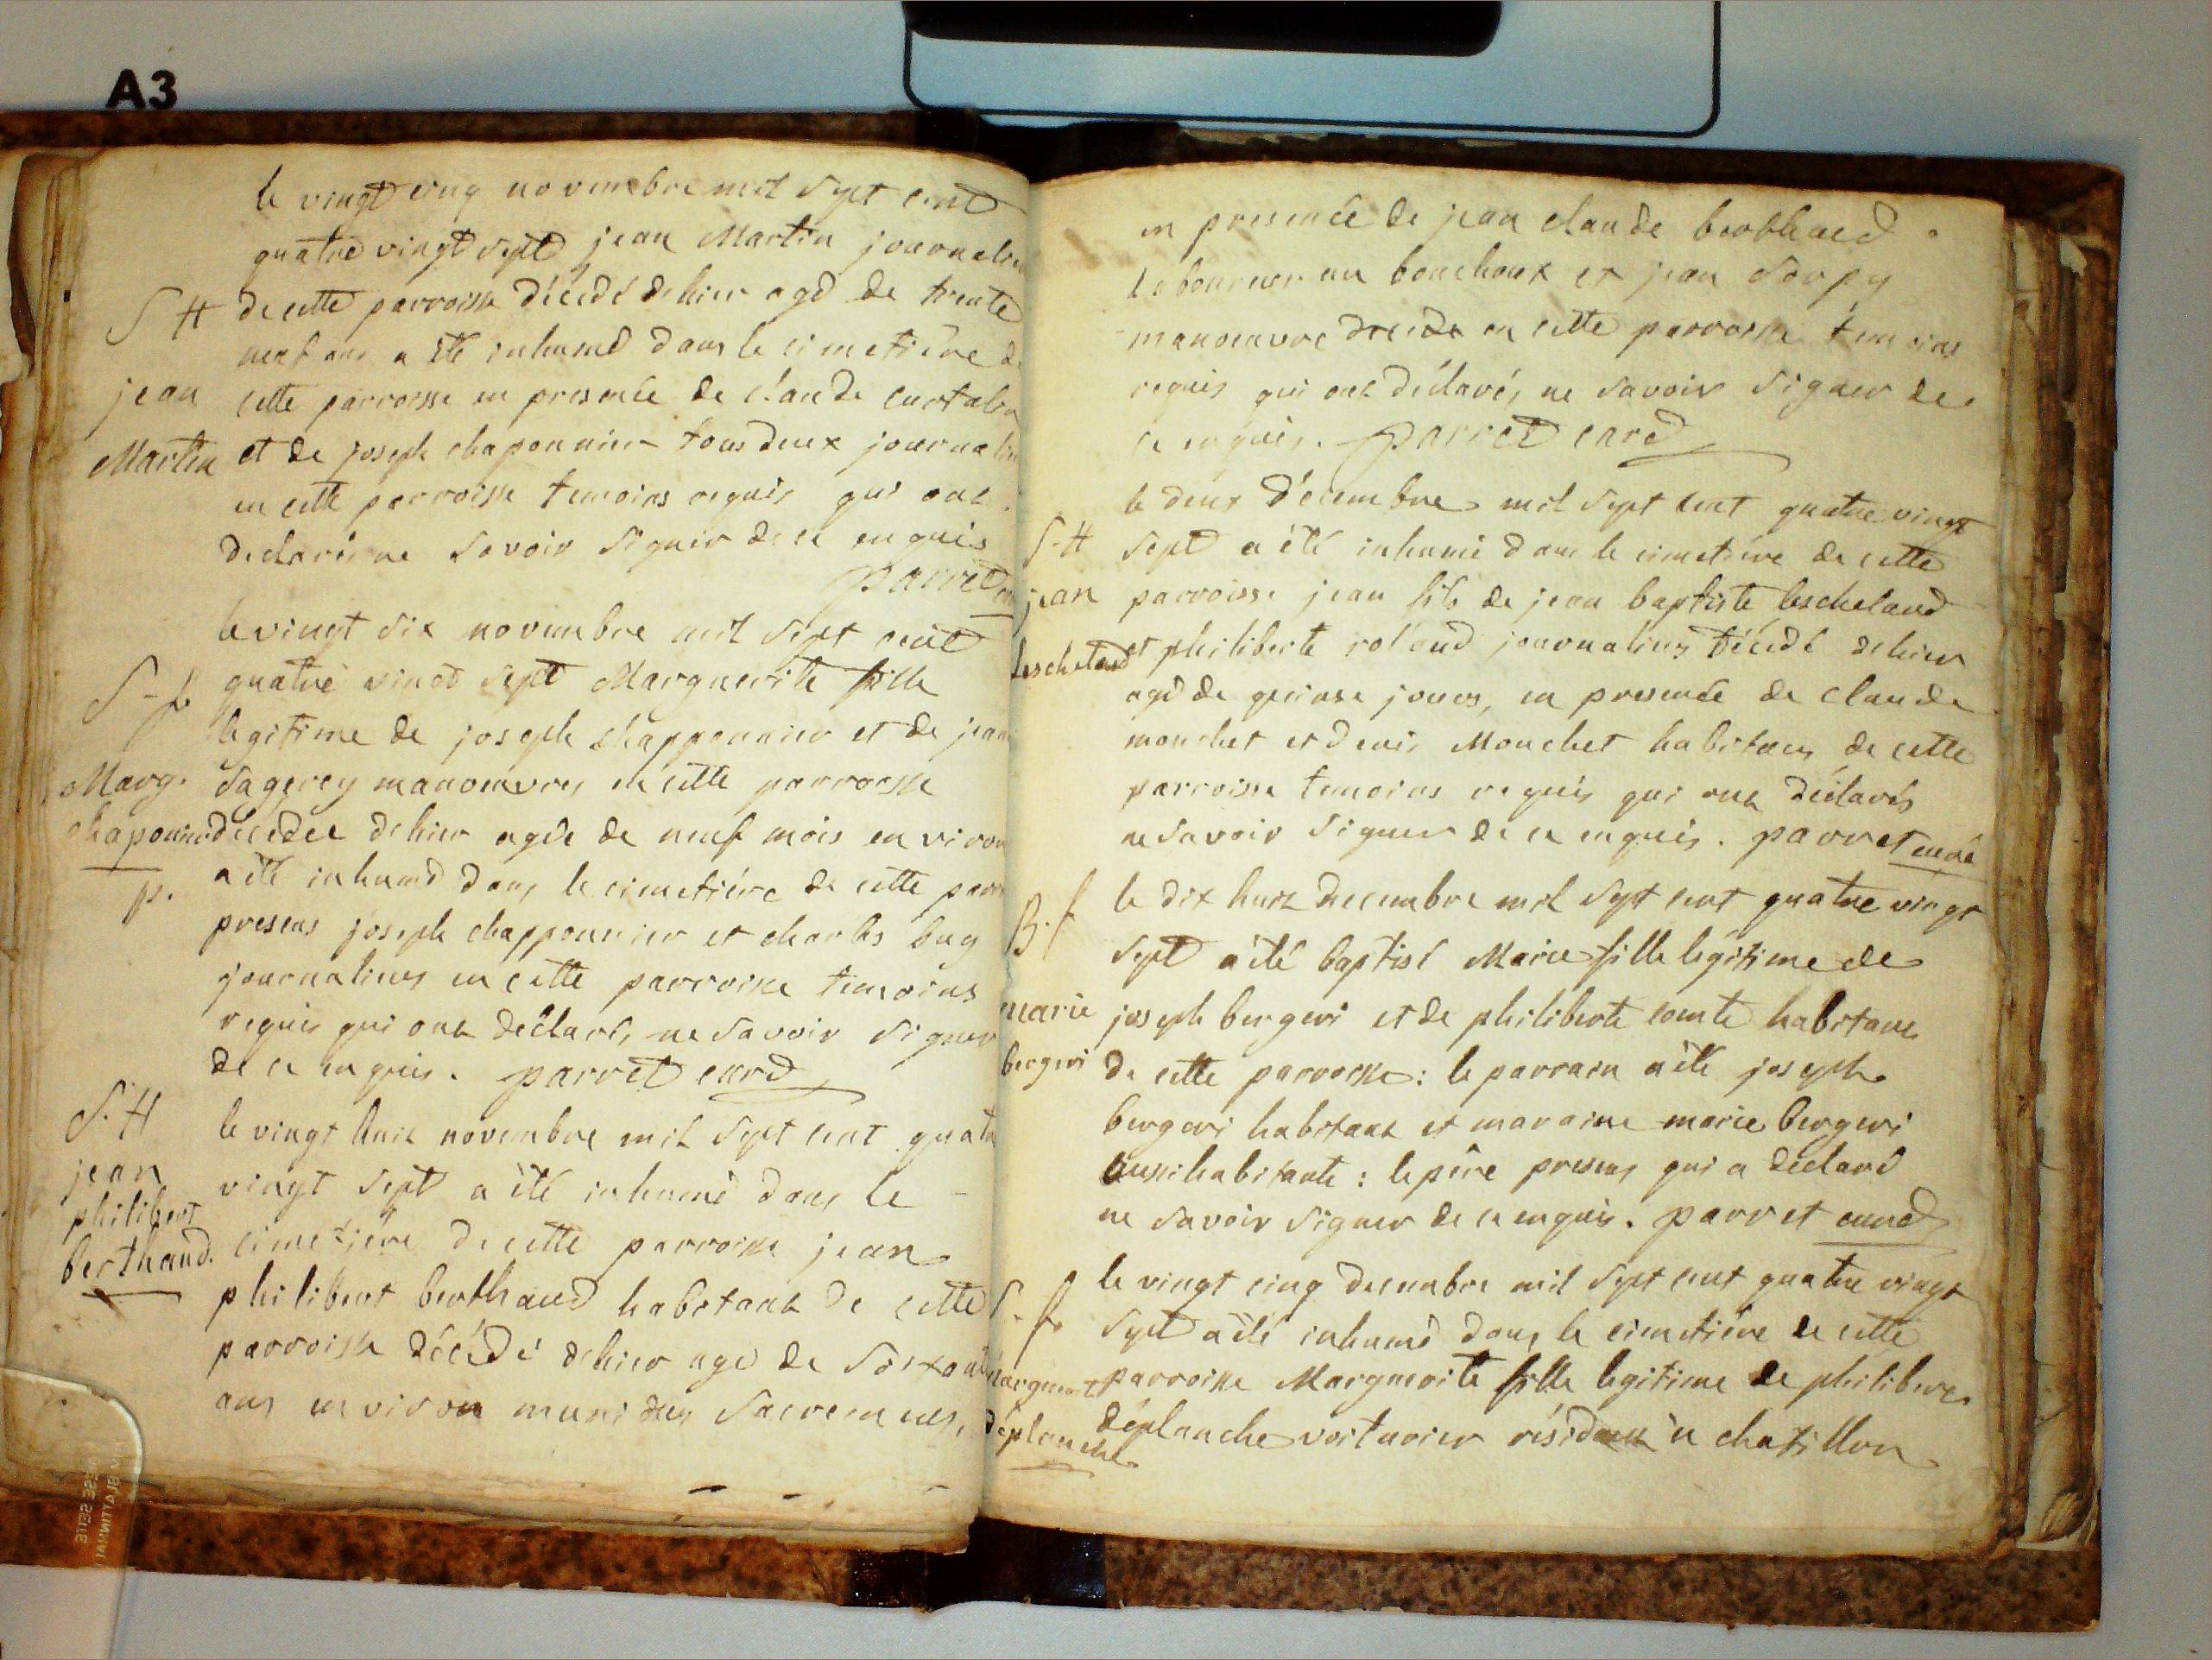 A3
le vingt cinq novembre mil sept cent
quatre vingt sept jean Martin journalier
S H de cette parroisse décédé dehier agé de trente
neuf ans a été inhumé dans le cimetière de
jean cette parroisse en presence de claude curtalin
Martin et de joseph chaponnier tous deux journaliers
en cette parroisse temoins requis qui ont
declarés ne savoir signer de ce enquis
parret
le vingt six novembre mil sept cent
S-f. quatre vingt sept Marguerite fille
legitime de joseph chapponnier et de jeanne
Marg. sagerey manoeuvres en cette parroisse
chaponnier décédée dehier agée de neuf mois environ
p. a été inhumé dans le cimetière de cette parr
presens joseph chapponnier et charles buy
journaliers en cette parroisse temoins
requis qui ont déclarés ne savoir signer
de ce enquis. parret curé
S. H le vingt huit novembre mil sept cent quatre
jean vingt sept a été inhumé dans le
philibert
berthaud. cimetière de cette parroisse jean
philibert berthaud habitant de cette
parroisse décédé dehier agé de soixante
ans environ muni des sacremens,
en presence de jean claude berthaud
laboureur au bouchoux et jean
manoeuvre en cette parroisse temoins
requis qui ont déclarés ne savoir signer de
ce enquis. parret curé
le deux décembre mil sept cent quatre vingt
S-H sept a été inhumé dans le cimetière de cette
jean parroisse jean fils de jean baptiste lescheland
lescheland et philiberte rolland journaliers décédé dehier
agé de quinse jours, en presence de claude
mouchet et denis Mouchet habitans de cette
parroisse temoins requis qui ont déclarés
ne savoir signer de ce enquis. parret curé
B. f le dix huit decembre mil sept cent quatre vingt
sept a été baptisé Marie fille légitime de
marie joseph bergeri et de philiberte comte habitans
bergeri de cette parroisse: le parrain a été joseph
bergeri habitant et maraine marie bergeri
aussi habitante: le père presens qui a déclaré
ne savoir signer de ce enquis. parret curé
le vingt cinq decembre mil sept cent quatre vingt
S. f. sept a été inhumé dans le cimetière de cette
marguerite parroisse Marguerite fille legitime de philibert
déplanche déplanche voiturier résidant à chatillon